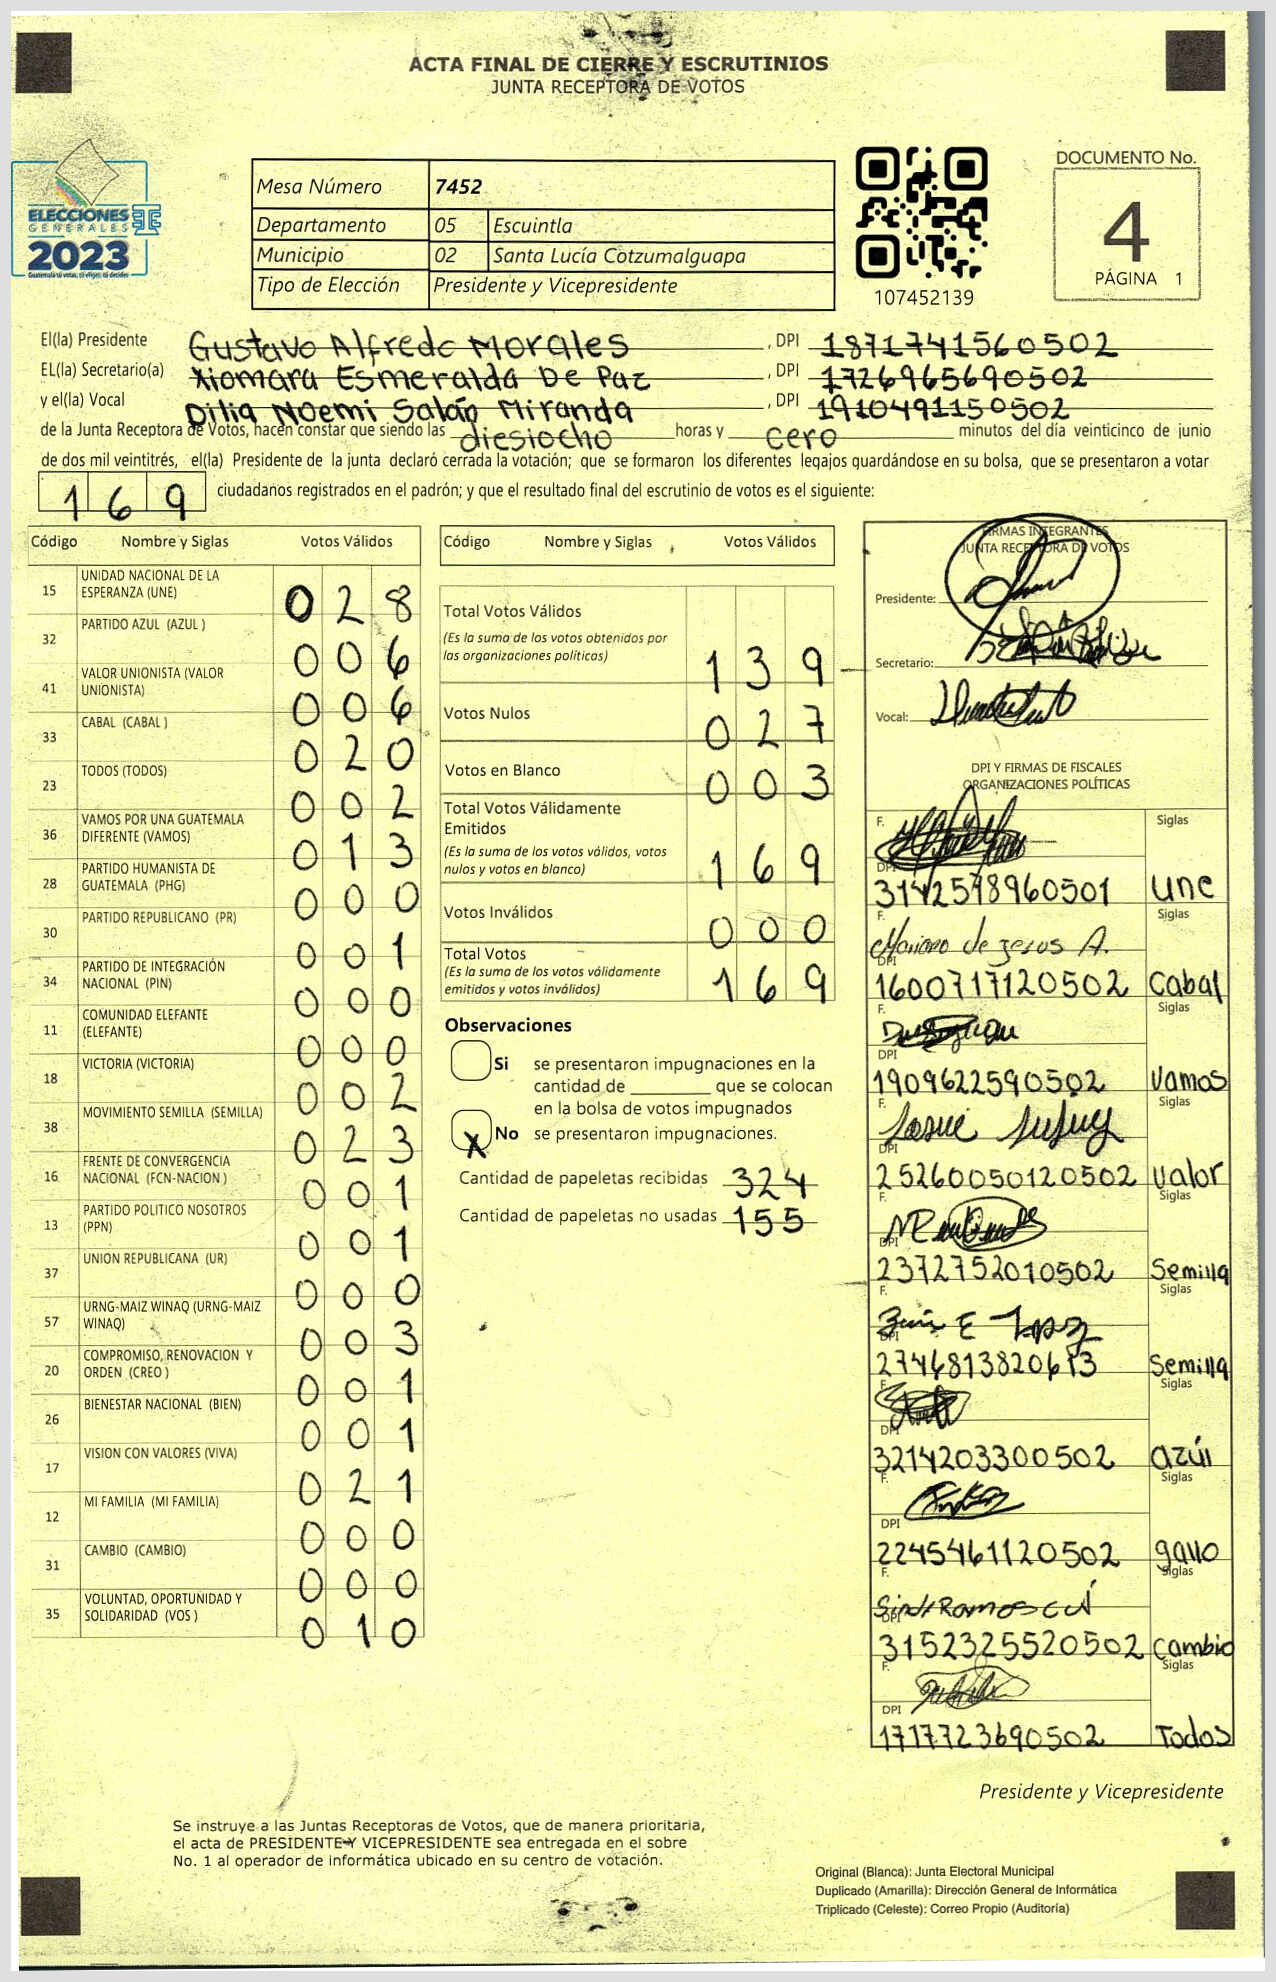 ACTA FINAL DE CIERRE Y ESCRUTINIOS
JUNTA RECEPTORA DE VOTOS
ELECCIONES
GENERALES
2023
Guatemala tú votas, tú eliges, tú decides
Mesa Número 7452
Departamento 05 Escuintla
Municipio 02 Santa Lucía Cotzumalguapa
Tipo de Elección Presidente y Vicepresidente
107452139
DOCUMENTO No.
4
PÁGINA 1
El(la) Presidente Gustavo Alfredo Morales, DPI 1871741560502
EL(la) Secretario(a) Xiomara Esmeralda De Paz, DPI 1726965690502
y el(la) Vocal Dilia Noemi Salán Miranda, DPI 1910491150502
de la Junta Receptora de Votos, hacen constar que siendo las diesiocho horas y cero minutos del día veinticinco de junio
de dos mil veintitrés, el(la) Presidente de la junta declaró cerrada la votación; que se formaron los diferentes legajos guardándose en su bolsa, que se presentaron a votar
169 ciudadanos registrados en el padrón; y que el resultado final del escrutinio de votos es el siguiente:
Código Nombre y Siglas Votos Válidos
15 UNIDAD NACIONAL DE LA ESPERANZA (UNE) 028
32 PARTIDO AZUL (AZUL ) 006
41 VALOR UNIONISTA (VALOR UNIONISTA) 006
33 CABAL (CABAL ) 020
23 TODOS (TODOS) 002
36 VAMOS POR UNA GUATEMALA DIFERENTE (VAMOS) 013
28 PARTIDO HUMANISTA DE GUATEMALA (PHG) 000
30 PARTIDO REPUBLICANO (PR) 001
34 PARTIDO DE INTEGRACIÓN NACIONAL (PIN) 000
11 COMUNIDAD ELEFANTE (ELEFANTE) 000
18 VICTORIA (VICTORIA) 002
38 MOVIMIENTO SEMILLA (SEMILLA) 023
16 FRENTE DE CONVERGENCIA NACIONAL (FCN-NACION ) 001
13 PARTIDO POLITICO NOSOTROS (PPN) 001
37 UNION REPUBLICANA (UR) 000
57 URNG-MAIZ WINAQ (URNG-MAIZ WINAQ) 003
20 COMPROMISO, RENOVACION Y ORDEN (CREO ) 001
26 BIENESTAR NACIONAL (BIEN) 001
17 VISION CON VALORES (VIVA) 021
12 MI FAMILIA (MI FAMILIA) 000
31 CAMBIO (CAMBIO) 000
35 VOLUNTAD, OPORTUNIDAD Y SOLIDARIDAD (VOS ) 010
Código Nombre y Siglas Votos Válidos
Total Votos Válidos
(Es la suma de los votos obtenidos por
las organizaciones políticas) 139
Votos Nulos 027
Votos en Blanco 003
Total Votos Válidamente
Emitidos
(Es la suma de los votos válidos, votos
nulos y votos en blanco) 169
Votos Inválidos 000
Total Votos
(Es la suma de los votos válidamente
emitidos y votos inválidos) 169
Observaciones
Si se presentaron impugnaciones en la
cantidad de ________ que se colocan
en la bolsa de votos impugnados
X No se presentaron impugnaciones.
Cantidad de papeletas recibidas 324
Cantidad de papeletas no usadas 155
FIRMAS INTEGRANTES
JUNTA RECEPTORA DE VOTOS
Presidente:
Secretario:
Vocal:
DPI Y FIRMAS DE FISCALES
ORGANIZACIONES POLÍTICAS
F. Siglas
DPI 3142598960501 une
F. Mariano de Jesus A. Siglas
DPI 1600717120502 Cabal
F. Siglas
DPI 1909622590502 Vamos
F. Siglas
DPI 25260050120502 Valor
F. Siglas
DPI 2372752010502 Semilla
F. E Lopez Siglas
DPI 2746813820613 Semilla
F. Siglas
DPI 3214203300502 azúl
F. Siglas
DPI 2245461120502 gallo
F. Siglas
DPI 3152325520502 Cambio
F. Siglas
DPI 1717723690502 Todos
Presidente y Vicepresidente
Se instruye a las Juntas Receptoras de Votos, que de manera prioritaria,
el acta de PRESIDENTE Y VICEPRESIDENTE sea entregada en el sobre
No. 1 al operador de informática ubicado en su centro de votación.
Original (Blanca): Junta Electoral Municipal
Duplicado (Amarilla): Dirección General de Informática
Triplicado (Celeste): Correo Propio (Auditoría)